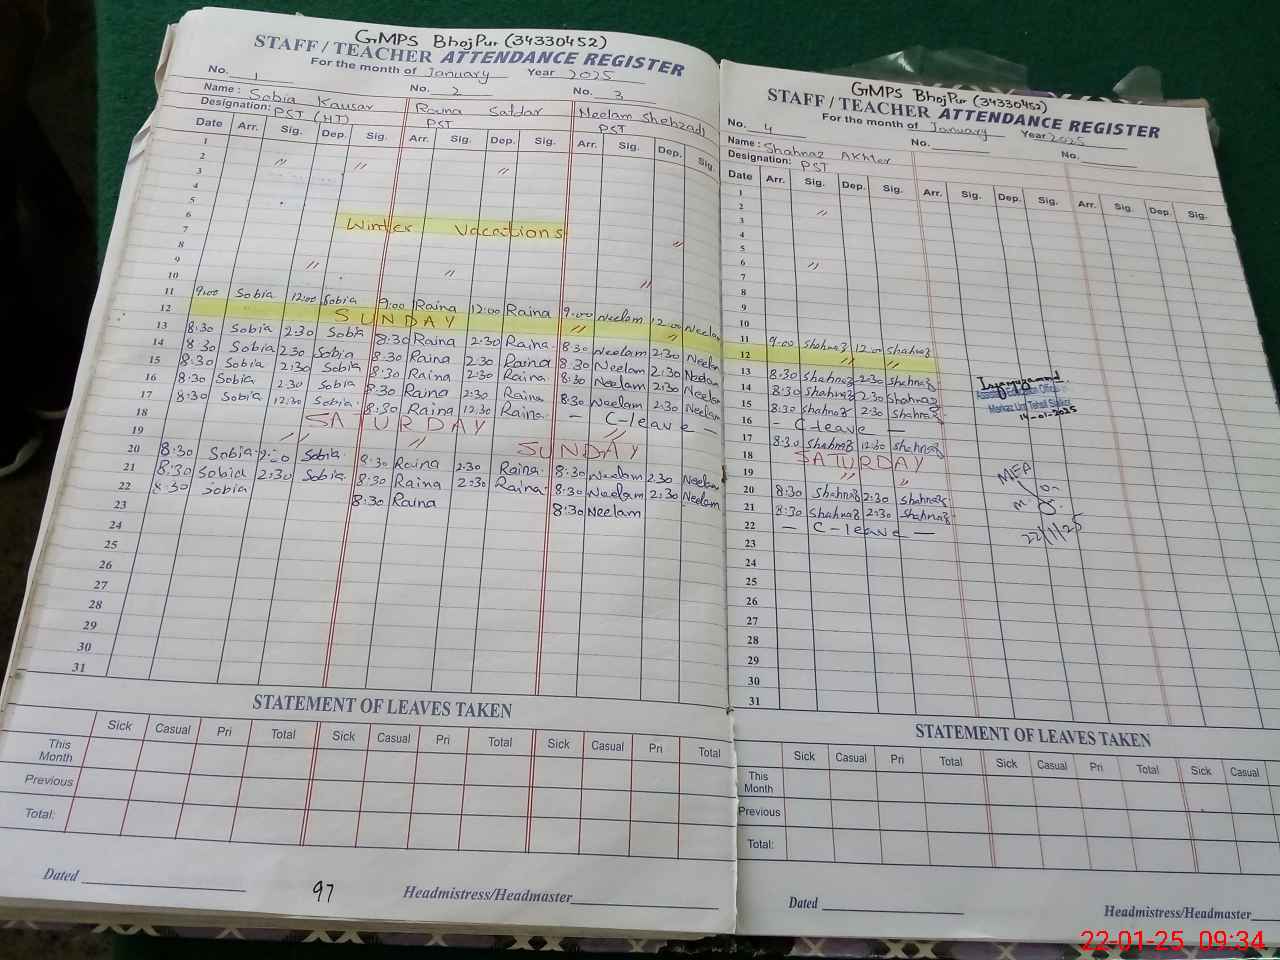 GMPS BhojPur (34330452)
STAFF / TEACHER ATTENDANCE REGISTER
For the month of January Year 2025
No. 1 No. 2 No. 3
Name : Sobia Kausar Raina Safdar Neelam Shehzadi
Designation: PST (HT) PST PST
Date Arr. Sig. Dep. Sig. Arr. Sig. Dep. Sig. Arr. Sig. Dep. Sig.
1
2 〃 〃
3 〃
4
5
6
7 Winter Vacations
8 〃
9 〃 〃
10 〃
11 9:00 Sobia 12:00 Sobia 9:00 Raina 12:00 Raina 9:00 Neelam 12:00 Neelam
12 SUNDAY 〃 〃
13 8:30 Sobia 2:30 Sobia 8:30 Raina 2:30 Raina 8:30 Neelam 2:30 Neelam
14 8:30 Sobia 2:30 Sobia 8:30 Raina 2:30 Raina 8:30 Neelam 2:30 Neelam
15 8:30 Sobia 2:30 Sobia 8:30 Raina 2:30 Raina 8:30 Neelam 2:30 Neelam
16 8:30 Sobia 2:30 Sobia 8:30 Raina 2:30 Raina 8:30 Neelam 2:30 Neelam
17 8:30 Sobia 12:30 Sobia 8:30 Raina 12:30 Raina - C-leave -
18 SATURDAY 〃
19 〃 〃 SUNDAY
20 8:30 Sobia Sobia 8:30 Raina 2:30 Raina 8:30 Neelam 2:30 Neelam
21 8:30 Sobia 2:30 Sobia 8:30 Raina 2:30 Raina 8:30 Neelam 2:30 Neelam
22 8:30 Sobia 8:30 Raina 8:30 Neelam
23
24
25
26
27
28
29
30
31
STATEMENT OF LEAVES TAKEN
Sick Casual Pri Total Sick Casual Pri Total Sick Casual Pri Total
This Month
Previous
Total:
Dated
97
Headmistress/Headmaster
GMPS BhojPur (34330452)
STAFF / TEACHER ATTENDANCE REGISTER
For the month of January Year 2025
No. 4 No. No.
Name : Shahnaz Akhter
Designation: PST
Date Arr. Sig. Dep. Sig. Arr. Sig. Dep. Sig. Arr. Sig. Dep. Sig.
1
2 〃
3
4
5
6 〃
7
8
9
10
11 9:00 Shahnaz 12:00 Shahnaz
12 〃 〃
13 8:30 Shahnaz 2:30 Shahnaz
14 8:30 Shahnaz 2:30 Shahnaz
15 8:30 Shahnaz 2:30 Shahnaz
16 - C-leave -
17 8:30 Shahnaz 12:30 Shahnaz
18 SATURDAY
19 〃 〃
20 8:30 Shahnaz 2:30 Shahnaz
21 8:30 Shahnaz 2:30 Shahnaz
22 - C-leave -
23
24
25
26
27
28
29
30
31
14-01-2025
MEA
22/1/25
STATEMENT OF LEAVES TAKEN
Sick Casual Pri Total Sick Casual Pri Total Sick Casual
This Month
Previous
Total:
Dated
Headmistress/Headmaster
22-01-25 09:34